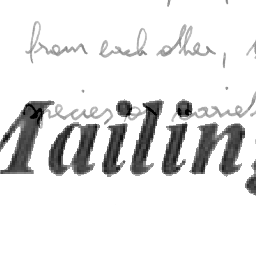 from each other,
species or variet
Mailing